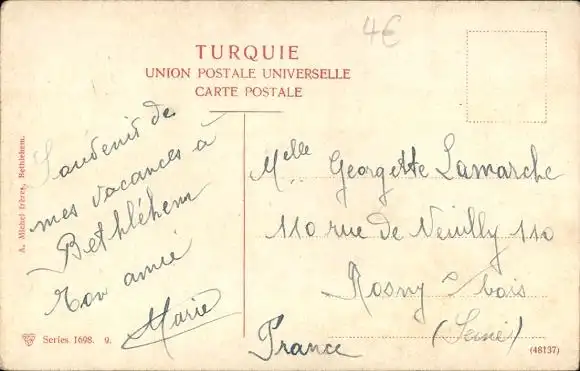 4€
TURQUIE
UNION POSTALE UNIVERSELLE
CARTE POSTALE
A. Michel frères, Bethlehem.
Souvenir de
mes vacances à
Bethléhem
Ton amie
Marie
Series 1698. 9.
Melle Georgette Lamarche
110 rue de Neuilly 110
Rosny s/ bois
(Seine)
France
(48137)